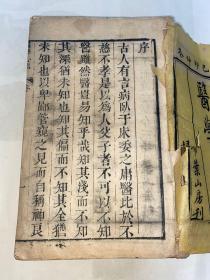 序
古人有言病臥于床委之庸醫比於不
慈不孝是以為人父子者不可以不知
醫雖然醫豈易知乎哉知其淺而不知
其深猶未知也知其偏而不知其全猶
未知也以卑鄙管窺之見而自稱神良
醫學
葉山房刊